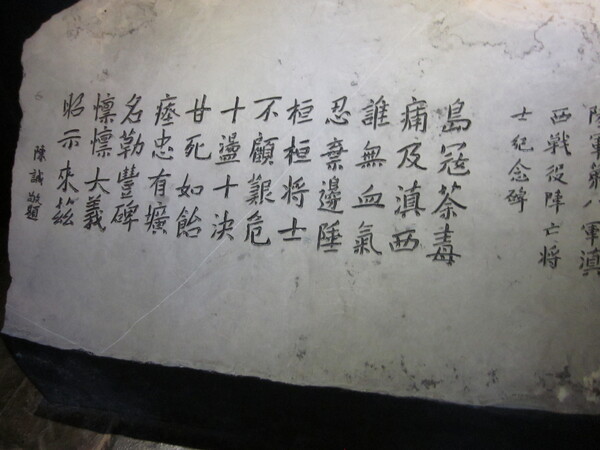 陸軍第八軍滇
西戰役陣亡将
士紀念碑
島冦荼毒
痛及滇西
誰無血氣
忍棄邊陲
桓桓将士
不顧艱危
十盪十决
甘死如飴
瘞忠有壙
名勒豐碑
懍懍大義
昭示來茲
陳誠敬題